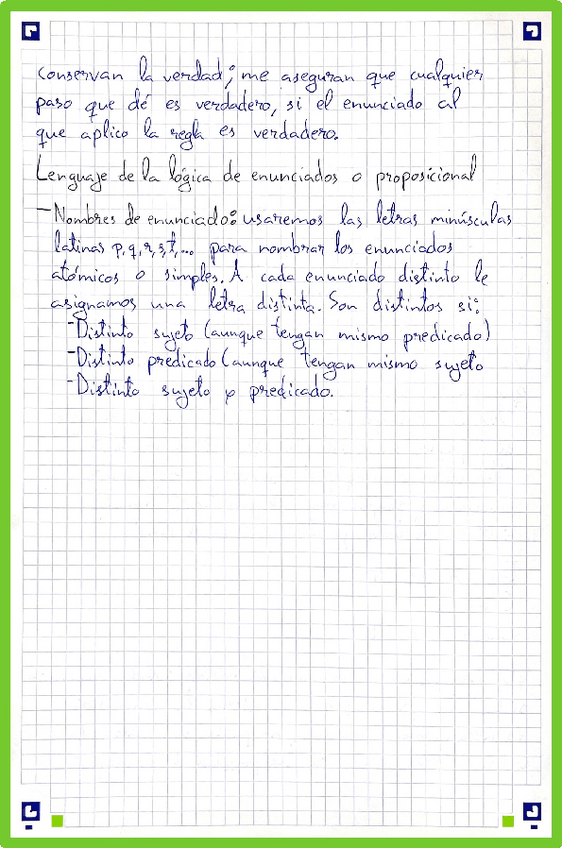 conservan la verdad; me aseguran que cualquier
paso que dé es verdadero, si el enunciado al
que aplico la regla es verdadero.
Lenguaje de la lógica de enunciados o proposicional
-Nombres de enunciado: usaremos las letras minúsculas
latinas p,q,r,s,t,... para nombrar los enunciados
atómicos o simples. A cada enunciado distinto le
asignamos una letra distinta. Son distintos si:
-Distinto sujeto (aunque tengan mismo predicado)
-Distinto predicado (aunque tengan mismo sujeto
-Distinto sujeto y predicado.